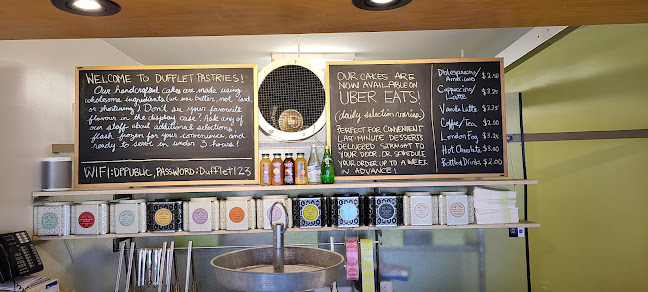 WELCOME TO DUFFLET PASTRIES!
Our handcrafted cakes are made using
wholesome ingredients (we use butter, not lard
or shortening!) Don't see your favourite
flavour in the display case? Ask any of
our staff about additional selections,
flash frozen for your convenience and
ready to serve in under 3 hours!
WIFI: DPPUBLIC, PASSWORD: Dufflet123
OUR CAKES ARE
NOW AVAILABLE ON
UBER EATS!
(daily selection varies)
PERFECT FOR CONVENIENT
LAST-MINUTE DESSERTS
DELIVERED STRAIGHT TO
YOUR DOOR, OR SCHEDULE
YOUR ORDER UP TO A WEEK
IN ADVANCE!
Dble espresso/
Americano $2.50
Cappuccino/
Latte $3.25
Vanilla Latte $3.75
Coffee/Tea $2.00
London Fog $3.25
Hot Chocolate $3.00
Bottled Drinks $2.00